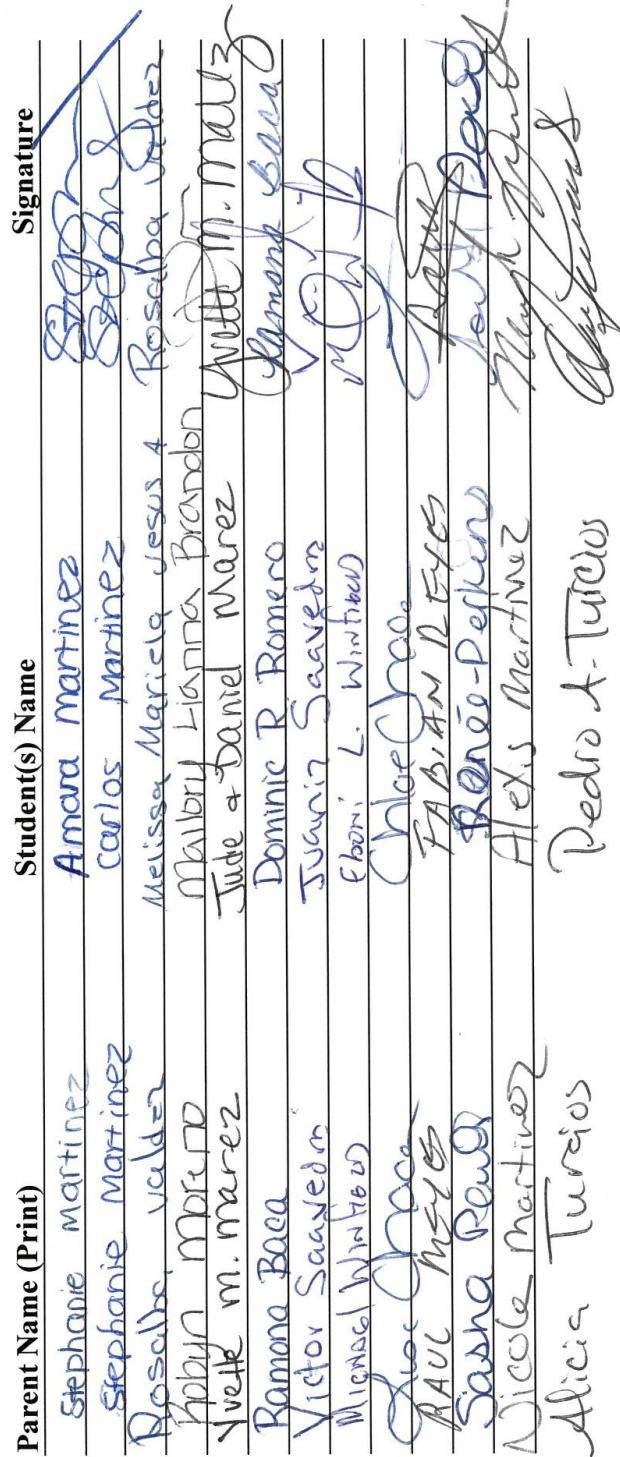 Parent Name (Print) Student(s) Name Signature
Stephanie Martinez Amara Martinez
Stephanie Martinez Carlos Martinez
Rosalba Valdez Melissa Mariela Jesus A Rosalba Valdez
Robyn Moreno Mallory Lianna Brandon
Yvette m. marez Jude & Daniel Marez Yvette m. marez
Ramona Baca Dominic R Romero Ramona Baca
Victor Saavedra Juanin Saavedra
Michael Winfield Eboni L. Winfield
Chace Chloe Chace
RAUL REYES FABIAN REYES
Sasha Renée Perkins
Nicole Martinez Alexis Martinez
Alicia Turcios Pedro A. Turcios